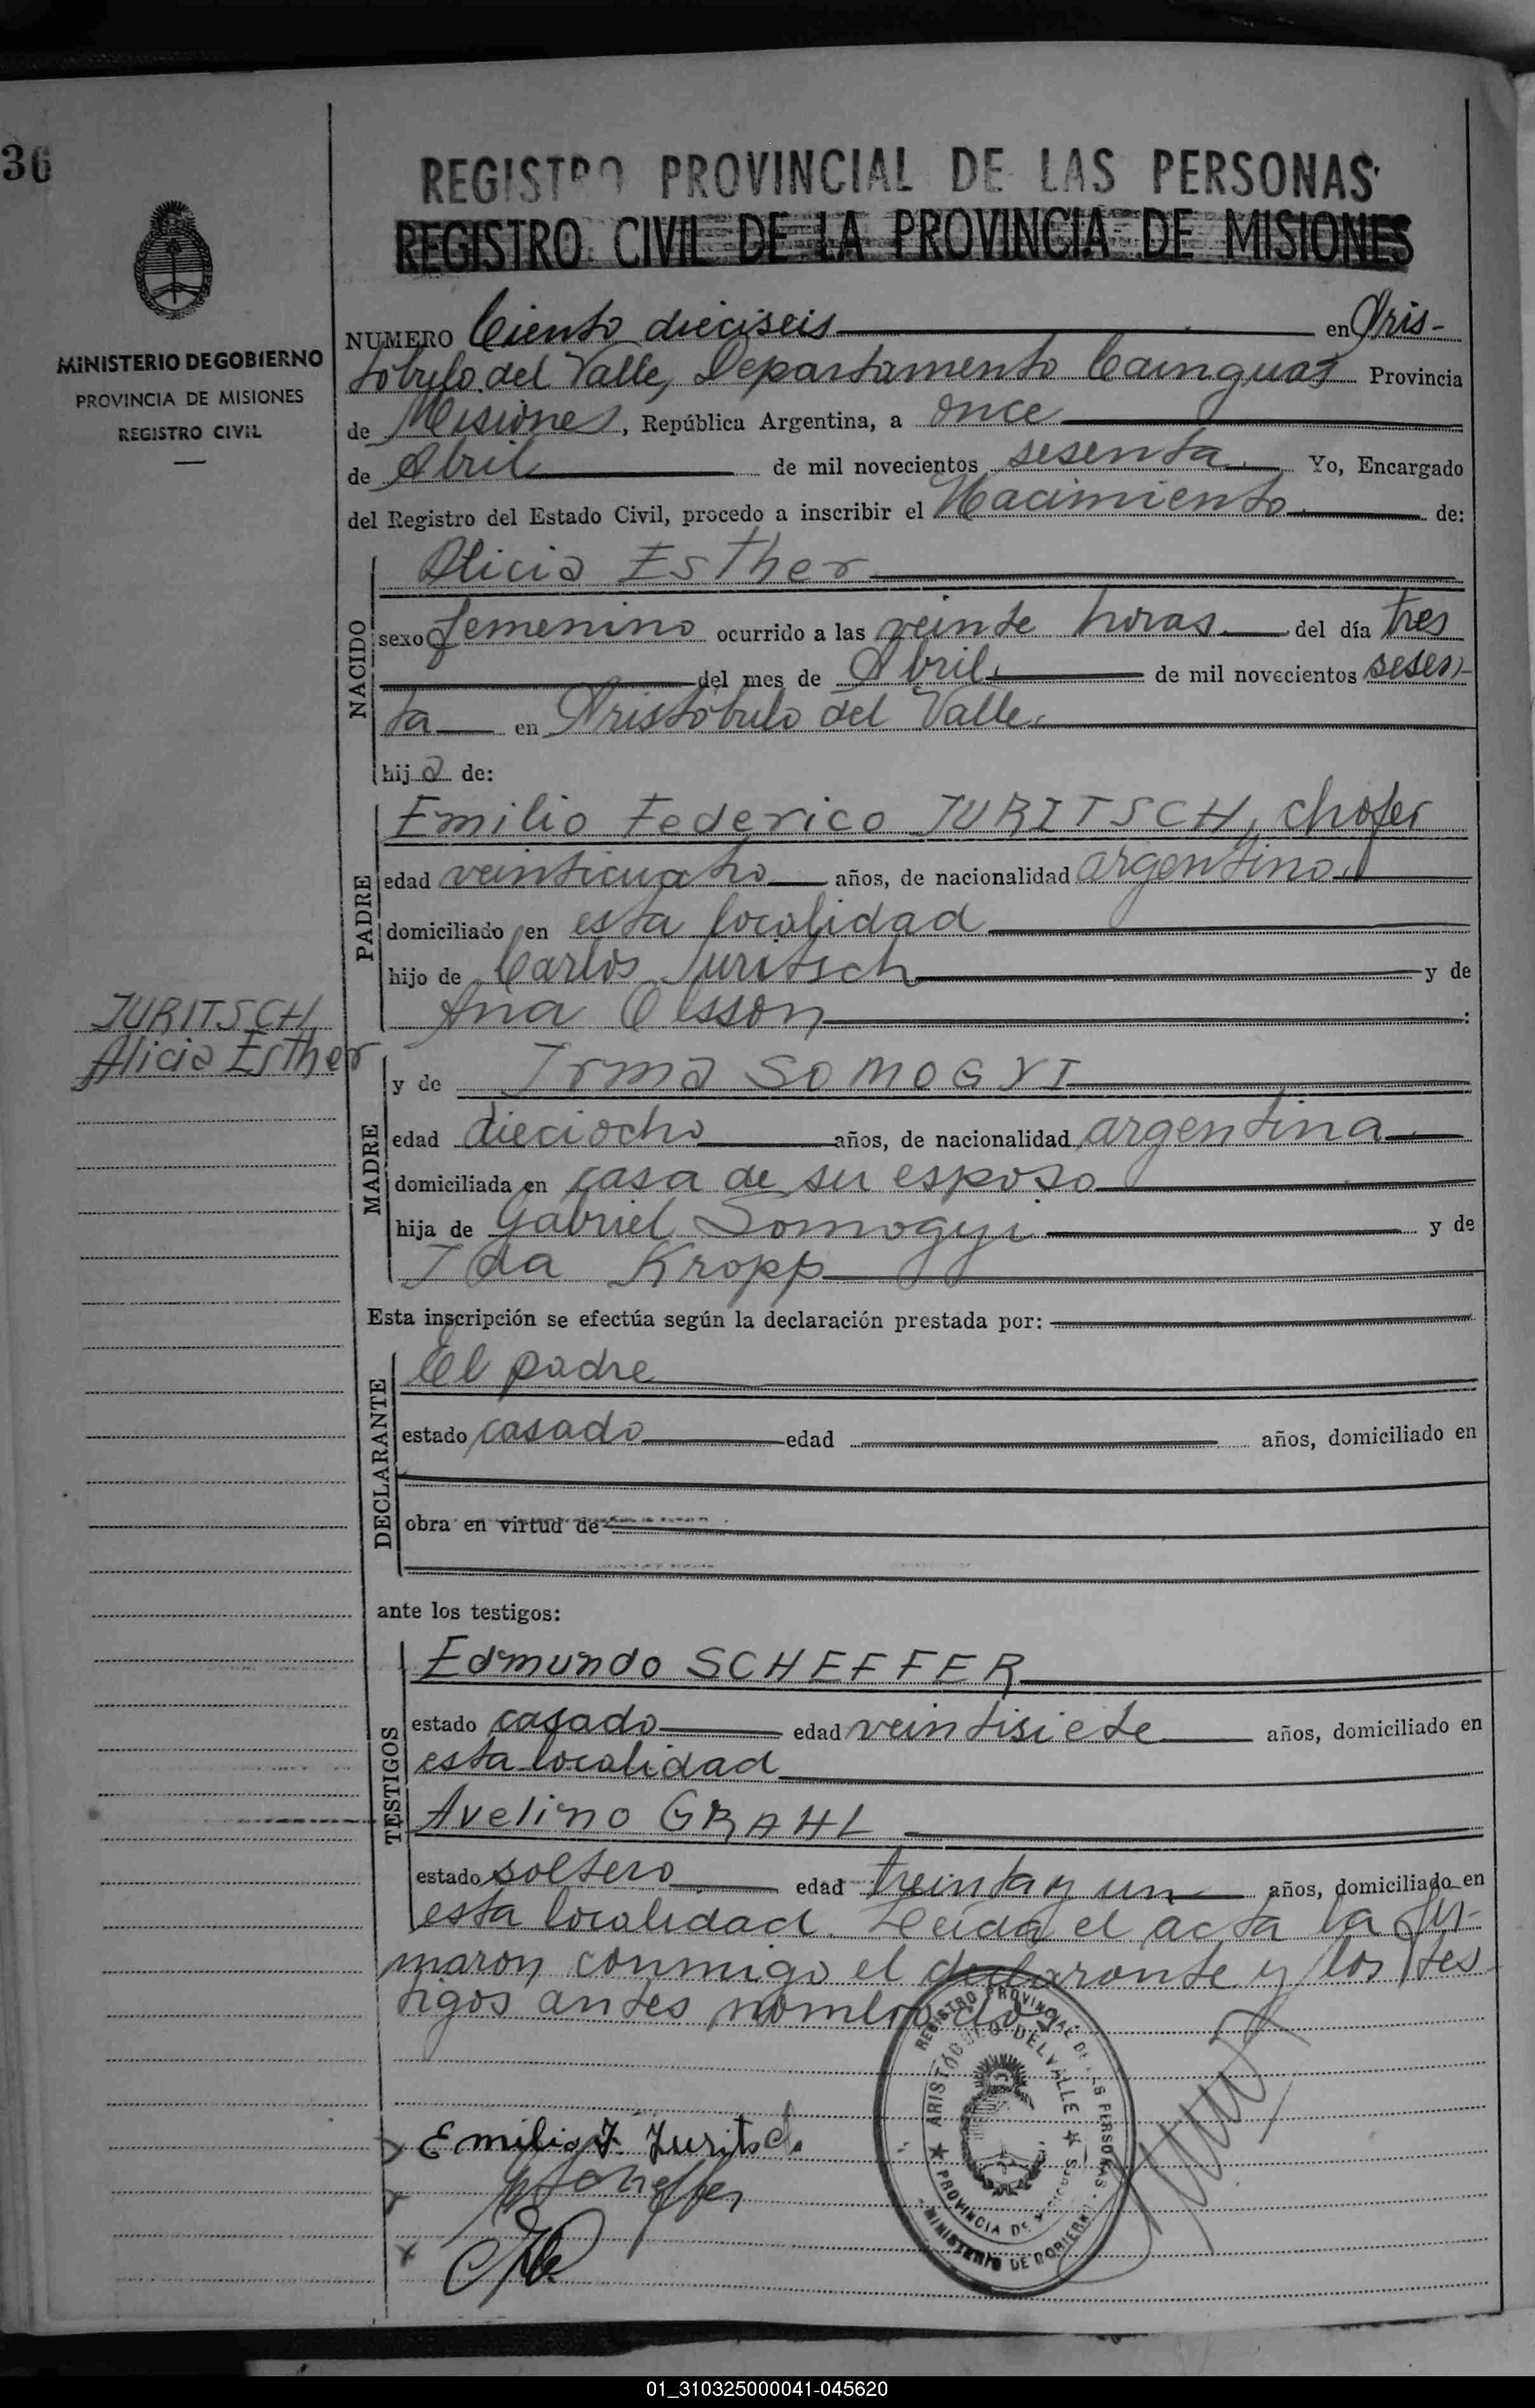 36
REGISTRO PROVINCIAL DE LAS PERSONAS
REGISTRO CIVIL DE LA PROVINCIA DE MISIONES
MINISTERIO DE GOBIERNO
PROVINCIA DE MISIONES
REGISTRO CIVIL
NUMERO Ciento dieciseis en Aris-
tóbulo del Valle, Departamento Cainguas Provincia
de Misiones, República Argentina, a once
de Abril de mil novecientos sesenta Yo, Encargado
del Registro del Estado Civil, procedo a inscribir el Nacimiento de:
NACIDO
Alicia Esther
sexo femenino ocurrido a las veinte horas del día tres
del mes de Abril de mil novecientos sesen-
ta en Aristóbulo del Valle
hija de:
PADRE
Emilio Federico JURITSCH, chofer
edad veinticuatro años, de nacionalidad argentino
domiciliado en esta localidad
hijo de Carlos Juritsch y de
Ana Olsson
JURITSCH
Alicia Esther
MADRE
y de Irma SOMOGYI
edad dieciocho años, de nacionalidad argentina
domiciliada en casa de su esposo
hija de Gabriel Somogyi y de
Ida Kropp
Esta inscripción se efectúa según la declaración prestada por:
DECLARANTE
El padre
estado casado edad años, domiciliado en
obra en virtud de
ante los testigos:
TESTIGOS
Edmundo SCHEFFER
estado casado edad veintisiete años, domiciliado en
esta localidad
Avelino GRAHL
estado soltero edad treinta y un años, domiciliado en
esta localidad. Leida el acta la fir-
maron conmigo el declarante y los tes-
tigos antes nombrados
REGISTRO PROVINCIAL DE LAS PERSONAS
ARISTÓBULO DEL VALLE
PROVINCIA DE MISIONES
MINISTERIO DE GOBIERNO
Emilio F. Juritsch
Scheffer
01_310325000041-045620